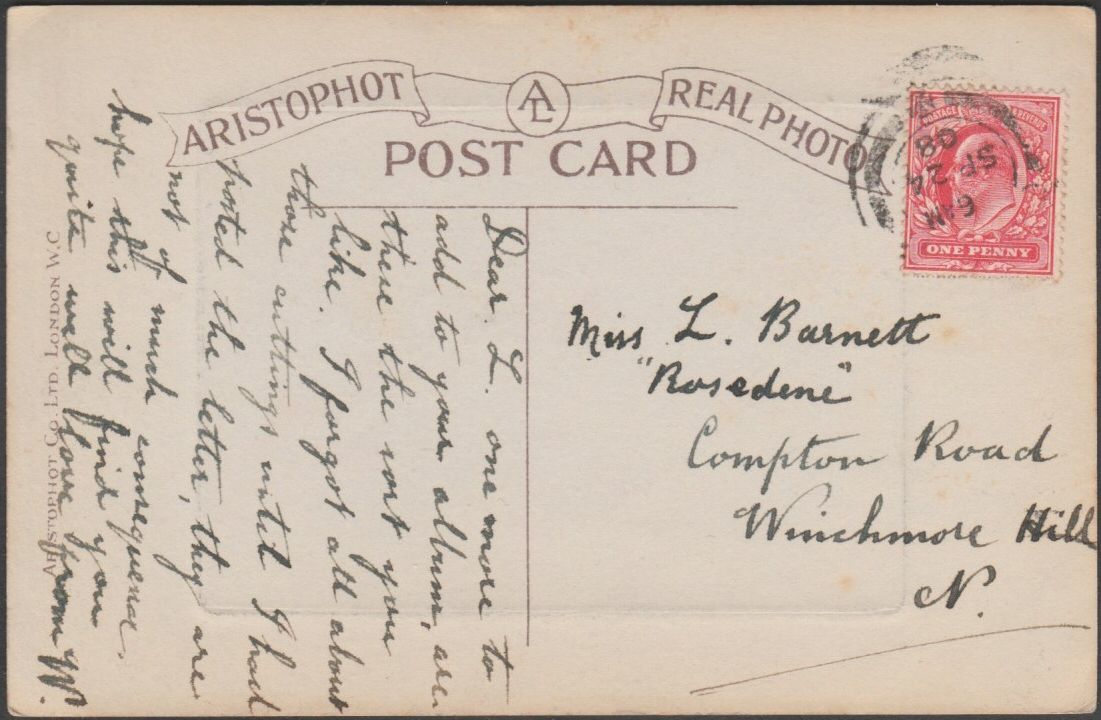 ARISTOPHOT
AL
REAL PHOTO
POST CARD
POSTAGE & REVENUE
ONE PENNY
SP 24
08
Miss L. Barnett
"Rosedene"
Compton Road
Winchmore Hill
N.
Dear. L. one more to
add to your album, are
these the sort you
like. I forgot all about
those cuttings until I had
posted the letter, they are
not of much consequence.
hope this will find you
quite well love from
ARISTOPHOT CO. LTD. LONDON W.C